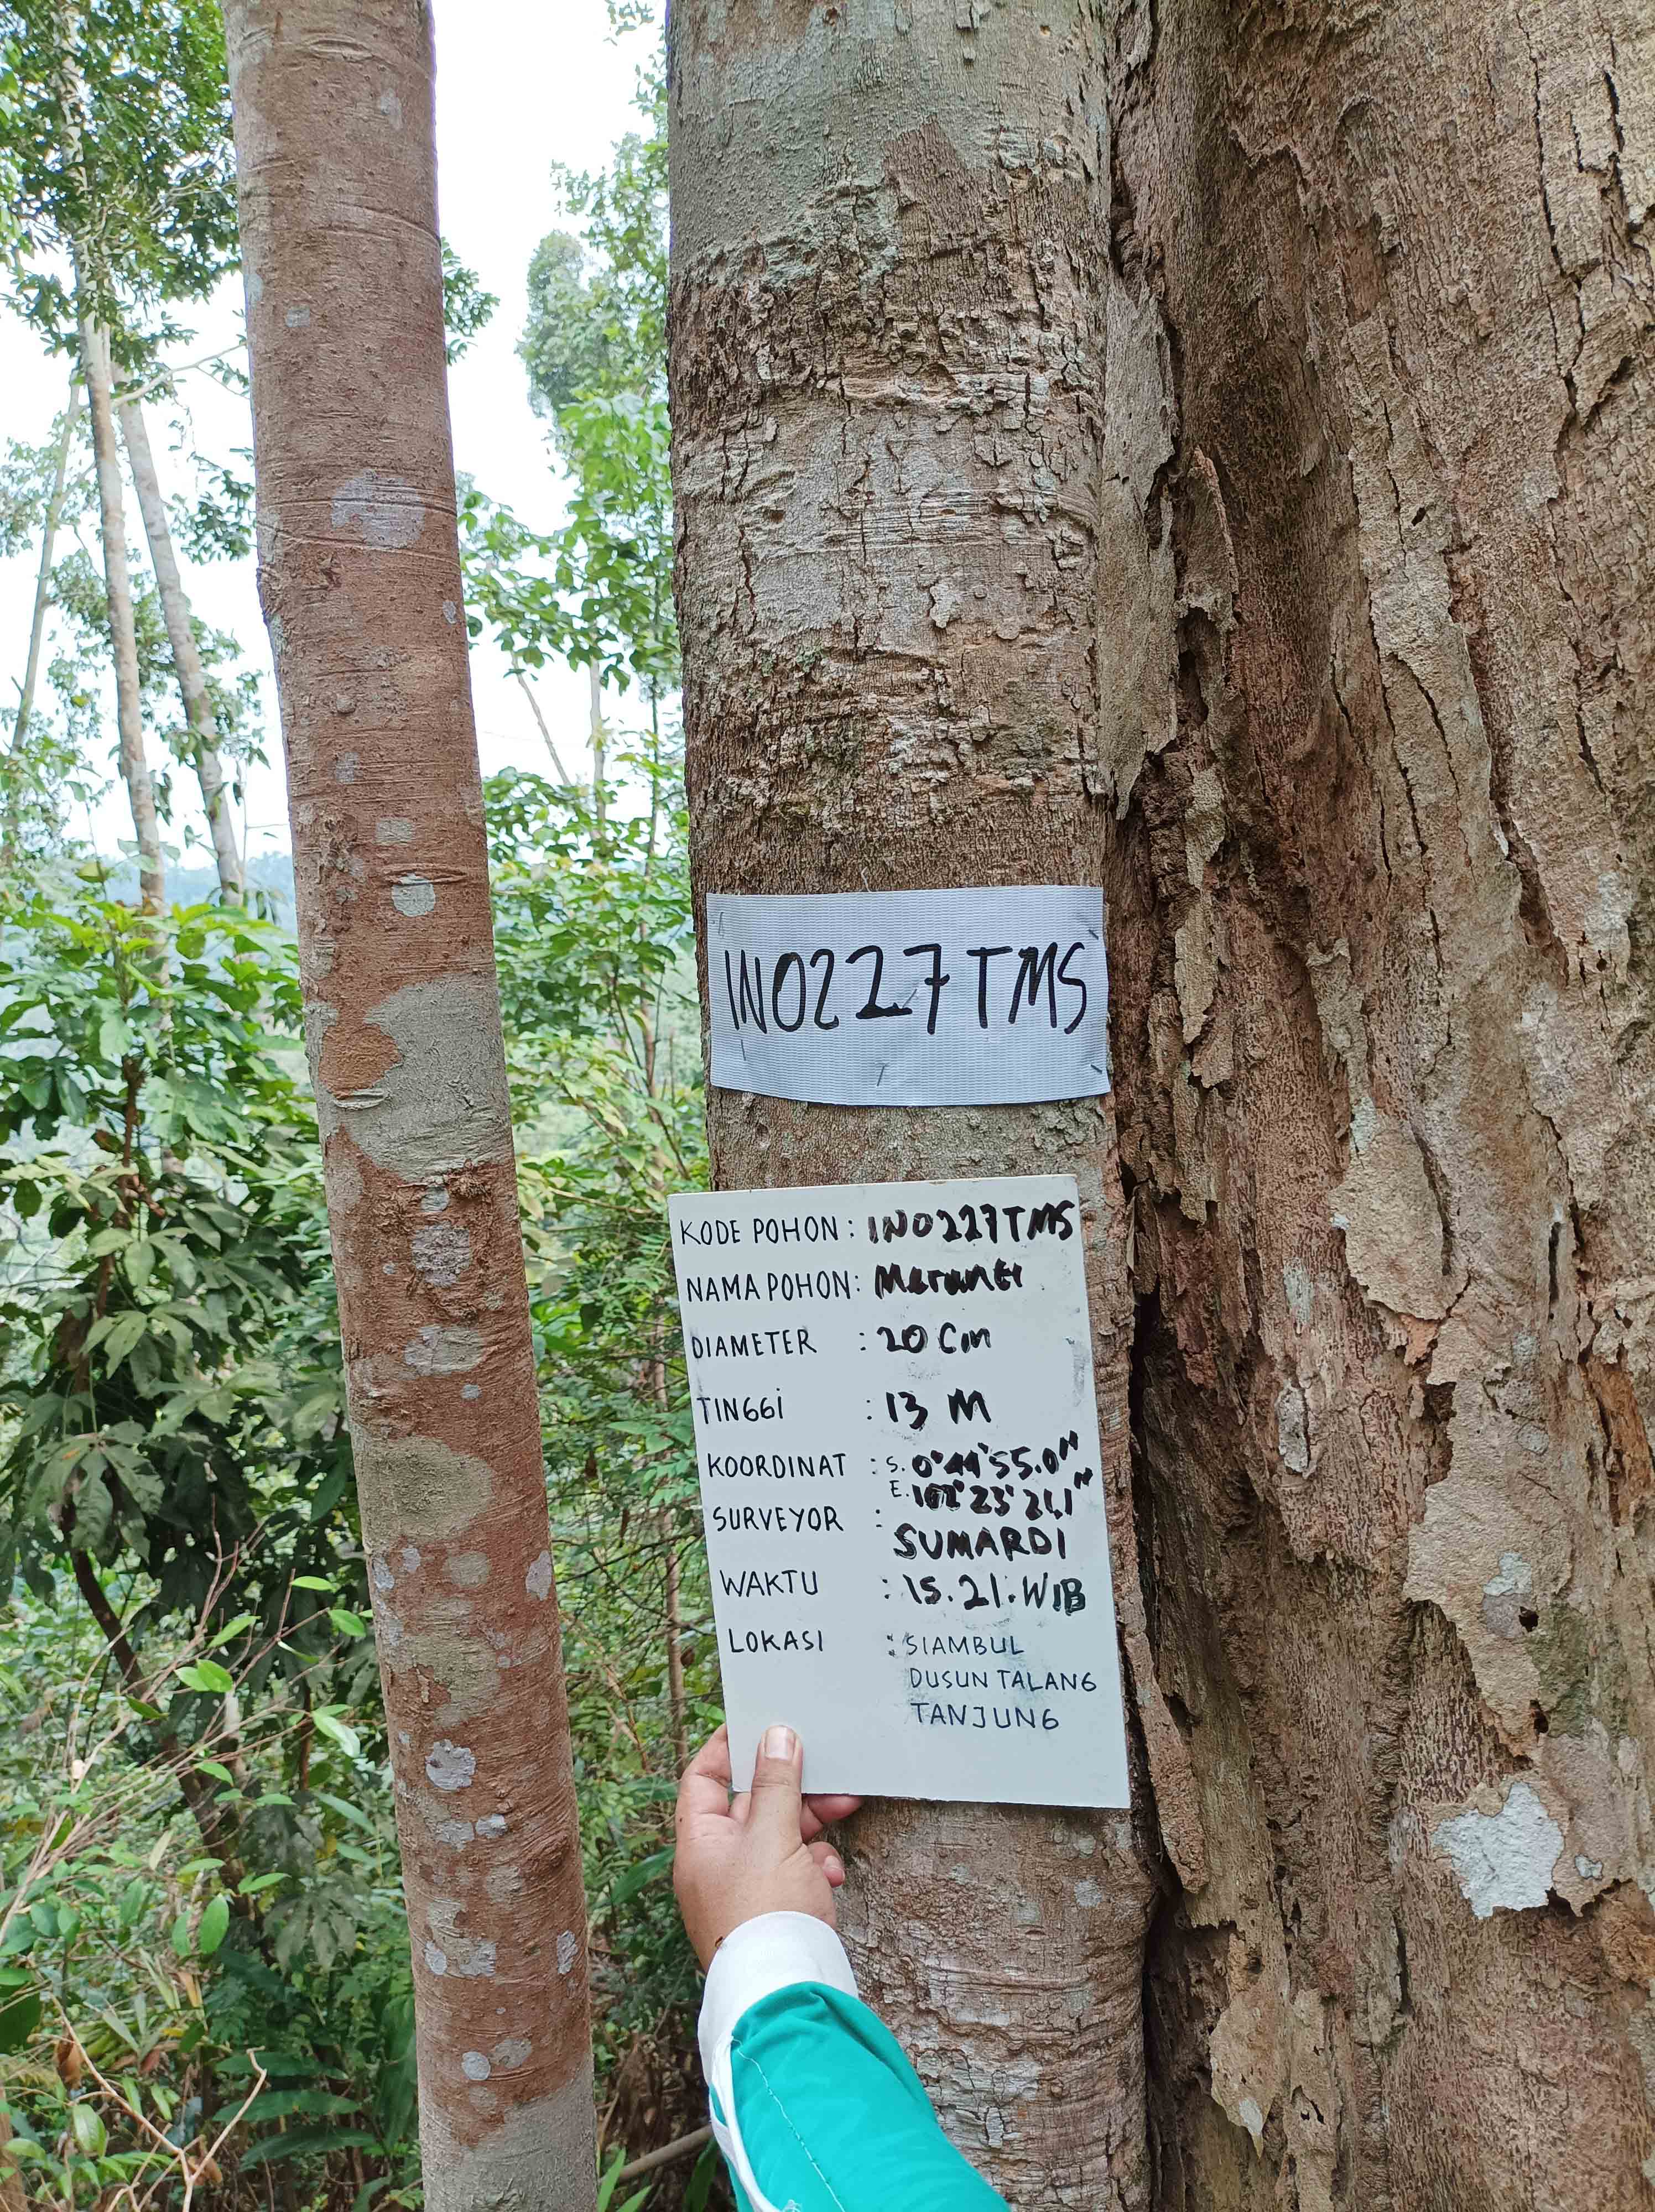 IN0227TMS
KODE POHON : IN0227TMS
NAMA POHON : Meranti
DIAMETER : 20 Cm
TINGGi : 13 M
KOORDINAT : S. 0°44'55.0"
E. 102°23'21.1"
SURVEYOR : SUMARDI
WAKTU : 15.21.WIB
LOKASI : SIAMBUL
DUSUN TALANG
TANJUNG